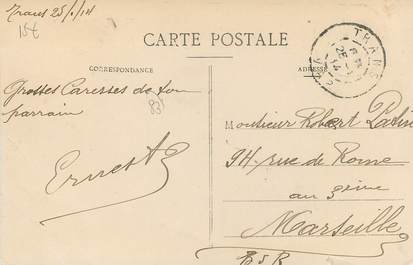 Trans 25/1/14
15€
CARTE POSTALE
CORRESPONDANCE
ADRESSE
TRANS
25 -1
14
VAR
Grosses Caresses de ton
parrain
83
Ernest
Monsieur Robert
94 rue de Rome
au 3ième
Marseille
B d R